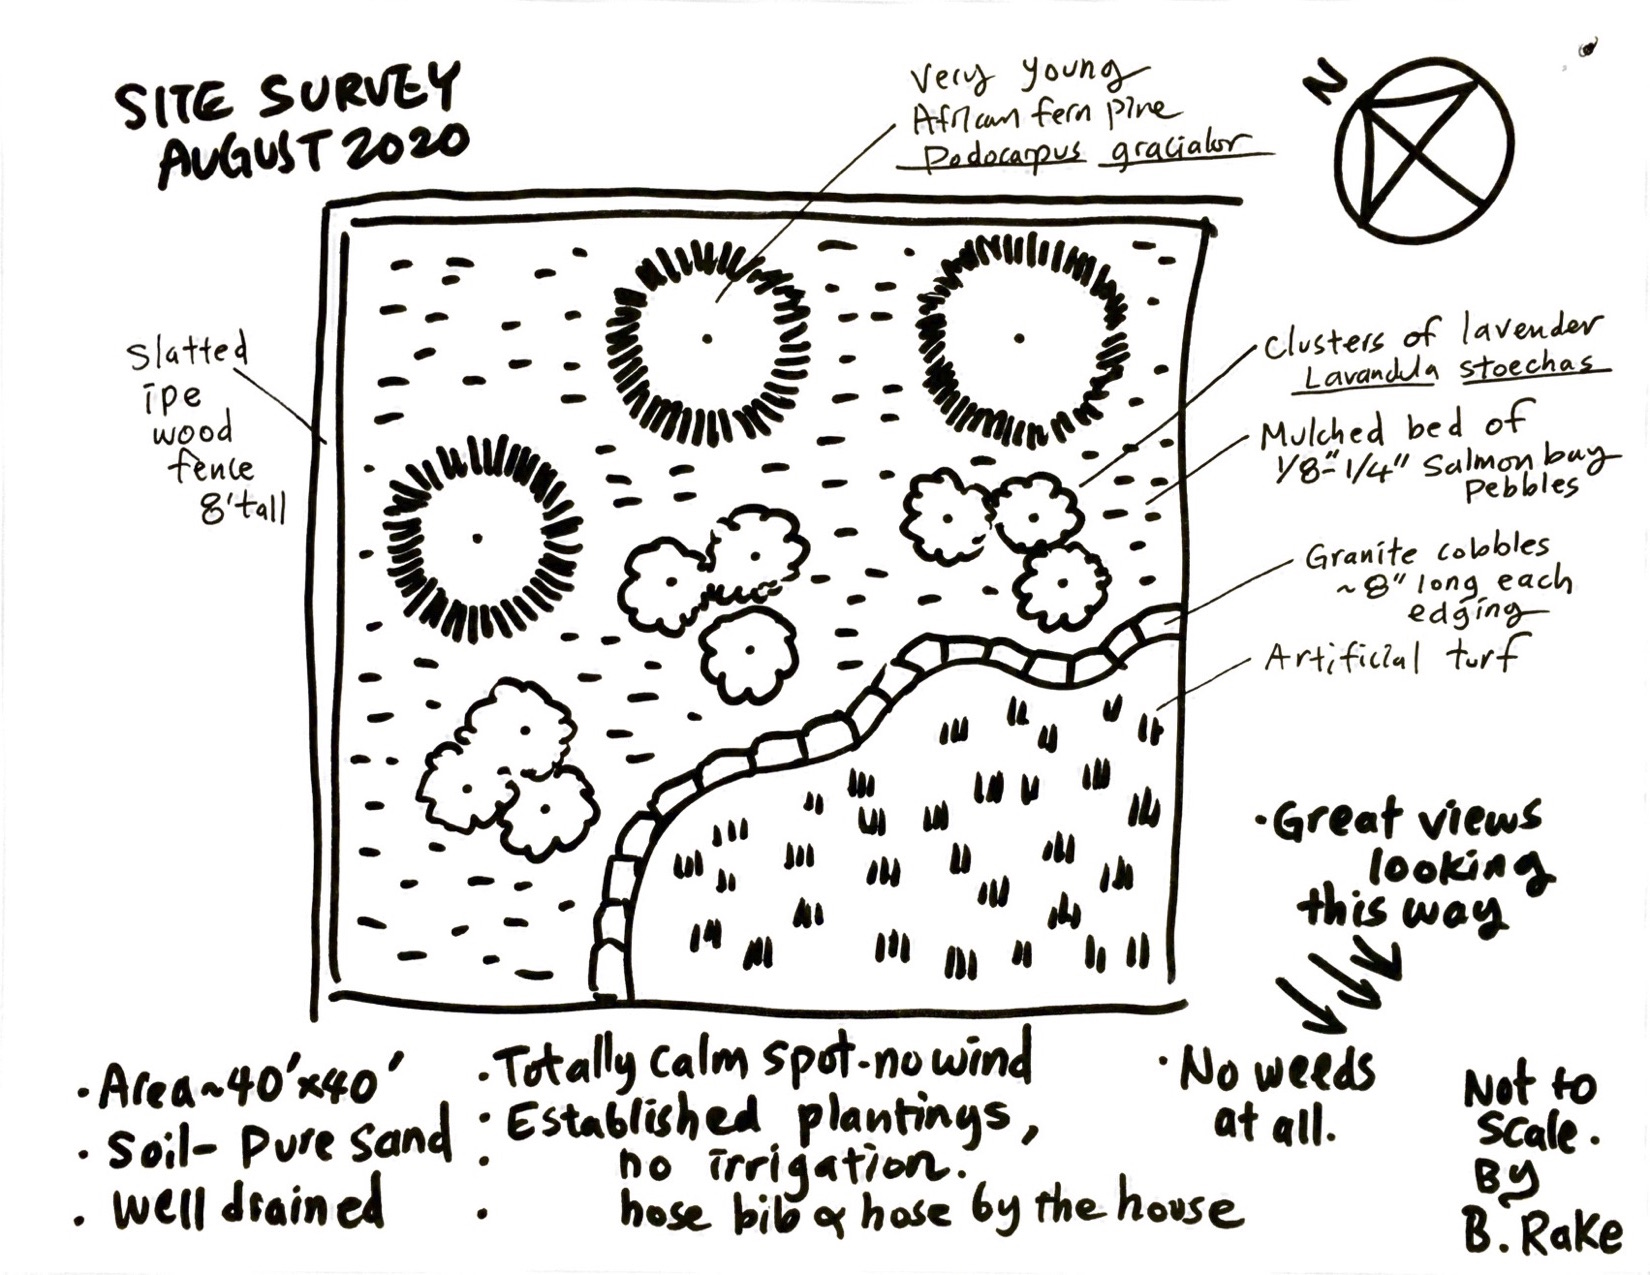 SITE SURVEY
AUGUST 2020
Very young
African fern pine
Podocarpus gracialor
N
Slatted
ipe
wood
fence
8' tall
Clusters of lavender
Lavandula stoechas
Mulched bed of
1/8"-1/4" Salmon bay
Pebbles
Granite cobbles
~8" long each
edging
Artificial turf
• Great views
looking
this way
• Area ~ 40' x 40'
• Soil - Pure Sand
• Well drained
• Totally calm spot - no wind
• Established plantings,
• no irrigation.
• hose bib & hose by the house
• No weeds
at all.
Not to
Scale.
By
B. Rake